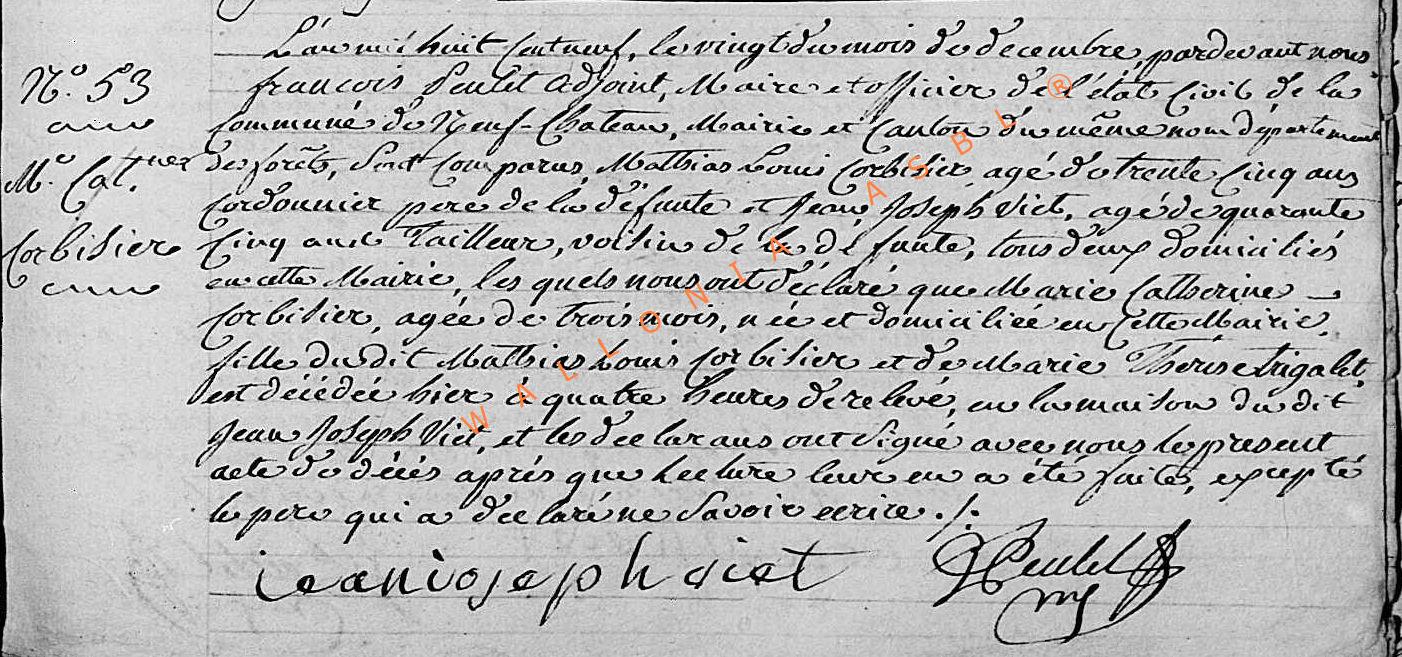 N.° 53
M.e Cat.nes
Corbisier
L'an mil huit Cent neuf, le vingt du mois de decembre, pardevant nous
françois Peulet Adjoint, Maire et officier de l'état Civil de la
Commune de Neuf-Chateau, Mairie et Canton du même nom département
des forêts, sont comparus Mathias Louis Corbisier agé de trente cinq ans
cordonnier pere de la défunte et Jean Joseph Viet, agé de quarante
Cinq ans Tailleur, voisin de la défunte, tous deux domiciliés
en cette Mairie, les quels nous ont déclaré que Marie Catherine
Corbisier, agée de trois mois, née et domiciliée en cette Mairie,
fille du dit Mathias Louis Corbisier et de Marie Therese trigalet,
est décédée hier à quatre heures de relevé, en la maison du dit
Jean Joseph Viet, et les declarans ont signé avec nous le present
acte de décés aprés que lecture leur en a été faite, excepté
le pere qui a declaré ne savoir ecrire ./.
jean joseph viet
Peulet
WALLONIA ASBL ®